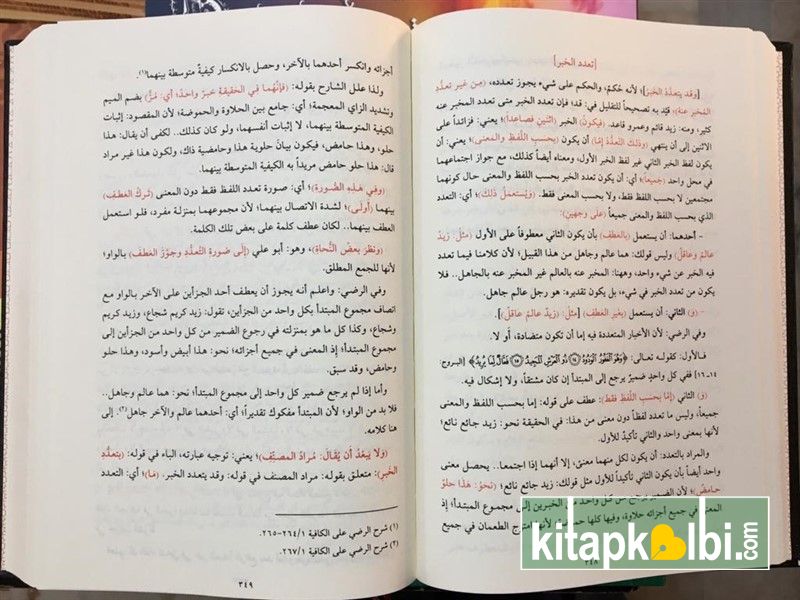 [تعدد الخبر]
[(وقد يتعدّدُ الخبرُ)؛ لأنه حُكمٌ، والحكم على شيء يجوز تعدده، (مِن غير تعدُّدِ
المُخبر عنه)، قيّد به تصحيحاً للتقليل في: قد؛ فإن تعدد الخبر متى تعدد المخبر عنه
كثير، ومنه: زيد قائم وعمرو قاعد. (فيكونُ) الخبر (اثنين فصاعداً)؛ يعني: فزائداً على
الاثنين إلى أن ينتهي (وذلك التعدُّدُ إمّا) أن يكون (بحسب اللّفظِ والمعنى)؛ يعني: أن
يكون لفظ الخبر الثاني غير لفظ الخبر الأول، ومعناه أيضاً كذلك، مع جواز اجتماعهما
في محل واحد (جميعاً)؛ أي: أن يكون تعدد الخبر بحسب اللفظ والمعنى حال كونهما
مجتمعين لا بحسب اللفظ فقط، ولا بحسب المعنى فقط. (ويُستعملُ ذلك)؛ أي: التعدد
الذي بحسب اللفظ والمعنى جميعاً (على وجهين):
- أحدهما: أن يستعمل (بالعاطف) بأن يكون الثاني معطوفاً على الأول (مثلُ: زيدٌ
عالمٌ وعاقلٌ) وليس قولك: هما عالم وجاهل من هذا القبيل؛ لأن كلامنا فيما تعدد
فيه الخبر عن شيء واحد، وههنا: المخبر عنه بالعالم غير المخبر عنه بالجاهل.. فلا
يكون من تعدد الخبر في شيء، بل يكون تقديره: هو رجل عالم جاهل.
- (و) الثاني: أن يستعمل (بغير العطف) [(مثلُ: زيدٌ عالمٌ عاقلٌ)].
وفي الرضي: لأن الأخبار المتعددة فيه إما أن تكون متضادة، أو لا.
فالأول: كقوله تعالى: ﴿وَهُوَ الْغَفُورُ الْوَدُودُ ۝ ذُو الْعَرْشِ الْمَجِيدُ ۝ فَعَّالٌ لِمَا يُرِيدُ﴾ [البروج:
١٤-١٦] ففي كل واحدٍ ضميرٌ يرجع إلى المبتدأ إن كان مشتقاً، ولا إشكال فيه.
(و) الثاني (إمّا بحسب اللّفظِ فقط): عطف على قوله: إما بحسب اللفظ والمعنى
جميعاً، وليس ما تعدد لفظاً دون معنى من هذا: في الحقيقة نحو: زيد جائع نائع؛
لأنهما بمعنى واحد والثاني تأكيدٌ للأول.
والمراد بالتعدد: أن يكون لكل منهما معنى، إلا أنهما إذا اجتمعا.. يحصل معنى
واحد أيضاً بأن يكون الثاني تأكيداً للأول مثل قولك: زيد جائع نائع؛ (نحوُ: هذا حلوٌ
حامضٌ)؛ لأن الضمير يرجع من كل واحد من الخبرين إلى مجموع المبتدأ؛ إذ
المعنى في جميع أجزائه حلاوة، وفيها كلها حموضة؛ لأنها امتزج الطعمان في جميع
٣٤٨
أجزائه وانكسر أحدهما بالآخر، وحصل بالانكسار كيفيةٌ متوسطة بينهما(١).
ولذا علل الشارح بقوله: (فإنّهما في الحقيقة خبرٌ واحدٌ؛ أي: مُزٌّ) بضم الميم
وتشديد الزاي المعجمة؛ أي: جامع بين الحلاوة والحموضة؛ لأن المقصود: إثبات
الكيفية المتوسطة بينهما، لا إثبات أنفسهما، ولو كان كذلك.. لكفى أن يقال: هذا
حلو، وهذا حامض، فيكون بيانَ حلوية هذا وحامضية ذاك، ولكون هذا غير مراد
قال: هذا حلو حامض مريداً به الكيفية المتوسطة بينهما.
(وفي هذه الصُّورة)؛ أي: صورة تعدد اللفظ فقط دون المعنى (تركُ العطف)
بينهما (أولى)؛ لشدة الاتصال بينهما؛ لأن مجموعهما بمنزلة مفرد، فلو استعمل
العطف بينهما.. لكان عطف كلمة على بعض تلك الكلمة.
(ونظر بعضُ النُّحاةِ)، وهو: أبو علي (إلى صورة التعدُّد وجوَّز العطف) بالواو؛
لأنها للجمع المطلق.
وفي الرضي: واعلم أنه يجوز أن يعطف أحد الجزأين على الآخر بالواو مع
اتصاف مجموع المبتدأ بكل واحد من الجزأين، تقول: زيد كريم شجاع، وزيد كريم
وشجاع، وكذا كل ما هو بمنزلته في رجوع الضمير من كل واحد من الجزأين إلى
مجموع المبتدأ؛ إذ المعنى في جميع أجزائه؛ نحو: هذا أبيض وأسود، وهذا حلو
وحامض، وقد سبق.
وأما إذا لم يرجع ضمير كل واحد إلى مجموع المبتدأ؛ نحو: هما عالم وجاهل..
فلا بد من الواو؛ لأن المبتدأ مفكوك تقديراً؛ أي: أحدهما عالم والآخر جاهل(٢). إلى
هنا كلامه.
(ولا يبعدُ أن يُقالَ: مُرادُ المصنِّف)؛ يعني: توجيه عبارته، الباء في قوله: (بتعدُّد
الخبر): متعلق بقوله: مراد المصنف في قوله: وقد يتعدد الخبر. (ما)؛ أي: التعدد
(١) شرح الرضي على الكافية ٢٦٤/١-٢٦٥.
(٢) شرح الرضي على الكافية ٢٦٧/١.
٣٤٩
kitapkalbi.com